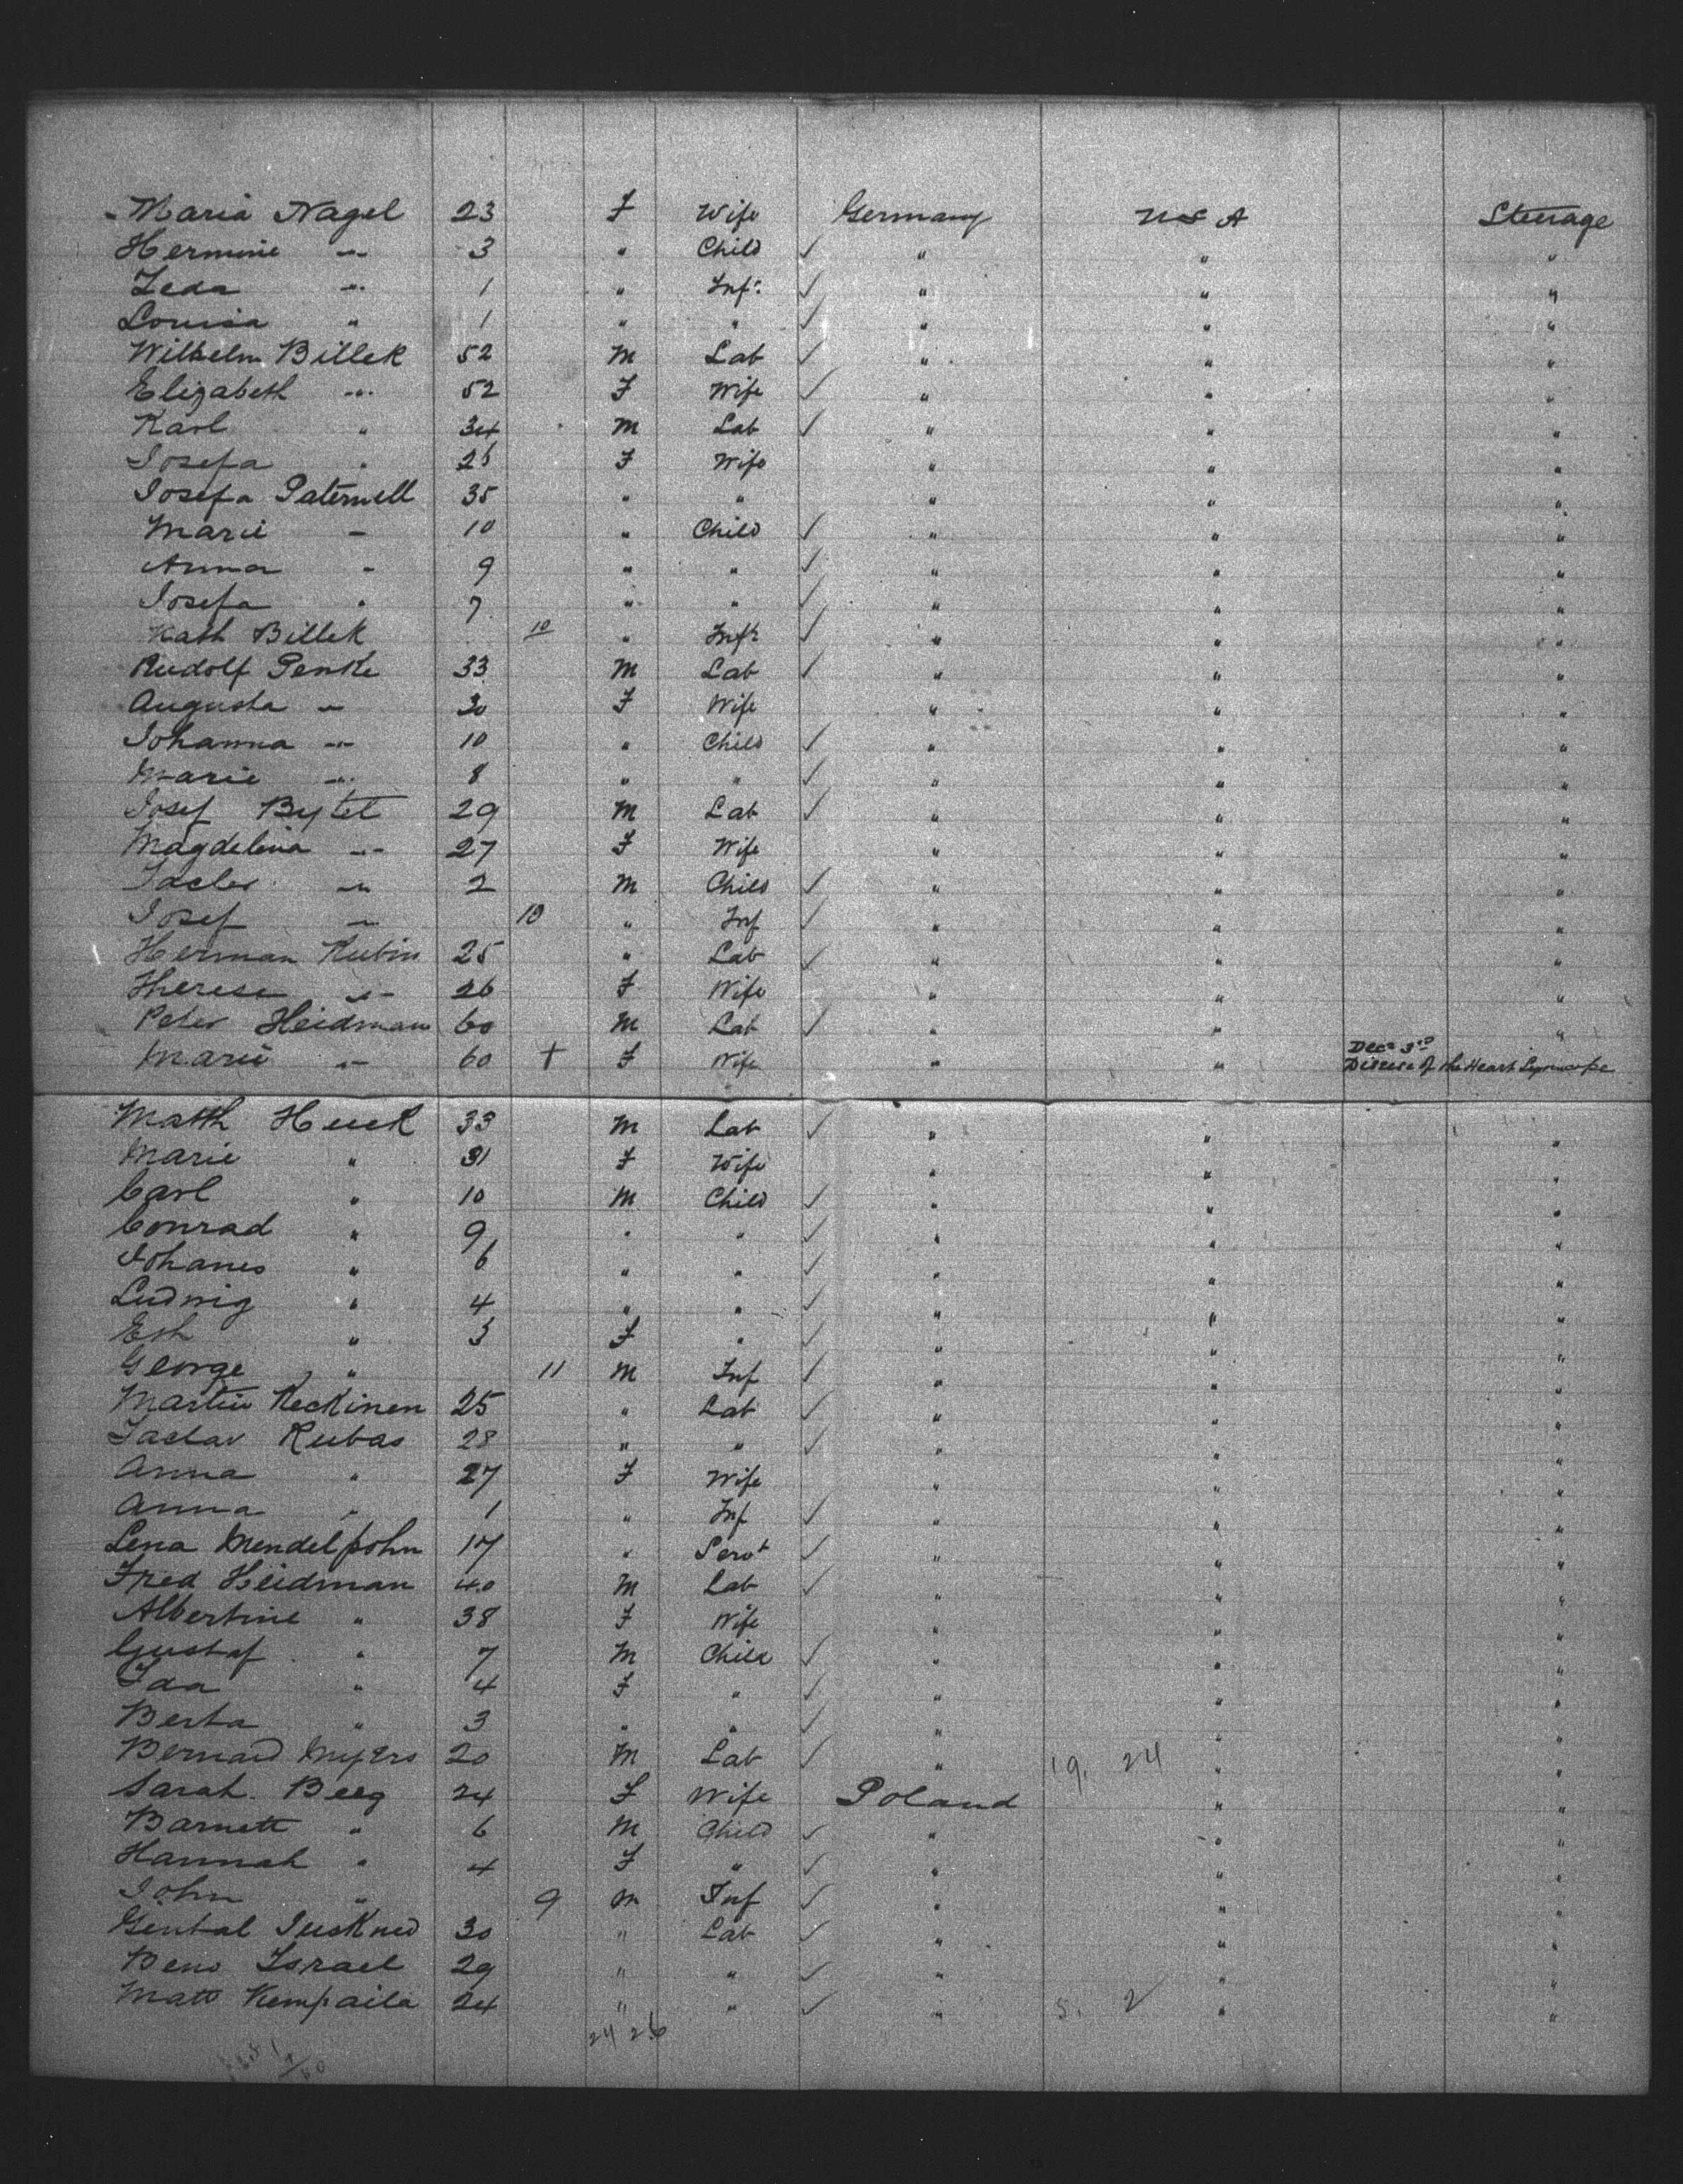 Maria Nagel 23 F Wife Germany U S A Steerage
Hermine " 3 " Child ✓ " " "
Leda " 1 " Inft ✓ " " "
Louisa " 1 " " ✓ " " "
Wilhelm Billek 52 M Lab ✓ " " "
Elizabeth " 52 F Wife ✓ " " "
Karl " 34 M Lab ✓ " " "
Josefa " 26 F Wife " " "
Josefa Paternell 35 " " " " "
Marie " 10 " Child ✓ " " "
Anna " 9 " " ✓ " " "
Josefa " 7 " " ✓ " " "
Kath Billek 10 " Inft ✓ " " "
Rudolf Penke 33 M Lab ✓ " " "
Augusta " 30 F Wife " " "
Johanna " 10 " Child ✓ " " "
Marie " 8 " " ✓ " " "
Josef Bytel 29 M Lab ✓ " " "
Magdelina " 27 F Wife " " "
" 2 M Child ✓ " " "
Josef " 10 " Inf ✓ " " "
Herman Rubin 25 " Lab ✓ " " "
Therese " 26 F Wife " " "
Peter Heidman 60 M Lab ✓ " " "
Marie " 60 + F Wife " " Dec 3rd Disease of the Heart
Matth Huck 33 M Lab ✓ " " "
Marie " 31 F Wife " " "
Carl " 10 M Child ✓ " " "
Conrad " 9 " " ✓ " " "
Johanes " 6 " " ✓ " " "
Ludwig " 4 " " ✓ " " "
Esh " 3 F " ✓ " " "
George " 11 M Inf ✓ " " "
Martin Keckinen 25 " Lab ✓ " " "
Jaclav Rubas 28 " " ✓ " " "
Anna " 27 F Wife " " "
Anna " 1 " Inf ✓ " " "
Lena Mendelsohn 17 " Servt ✓ " " "
Fred Heidman 40 M Lab ✓ " " "
Albertine " 38 F Wife " " "
Gustaf " 7 M Child ✓ " " "
Ida " 4 F " ✓ " " "
Berta " 3 " " ✓ " " "
Bernard Myers 20 M Lab ✓ " 19. 24 " "
Sarah Berg 24 F Wife Poland " "
Barnett " 6 M Child ✓ " " "
Hannah " 4 F " ✓ " " "
John " 9 M Inf ✓ " " "
30 " Lab ✓ " " "
Beno Israel 29 " " ✓ " " "
Matt Kempaila 24 " " ✓ " 5. 2 " "
24 26